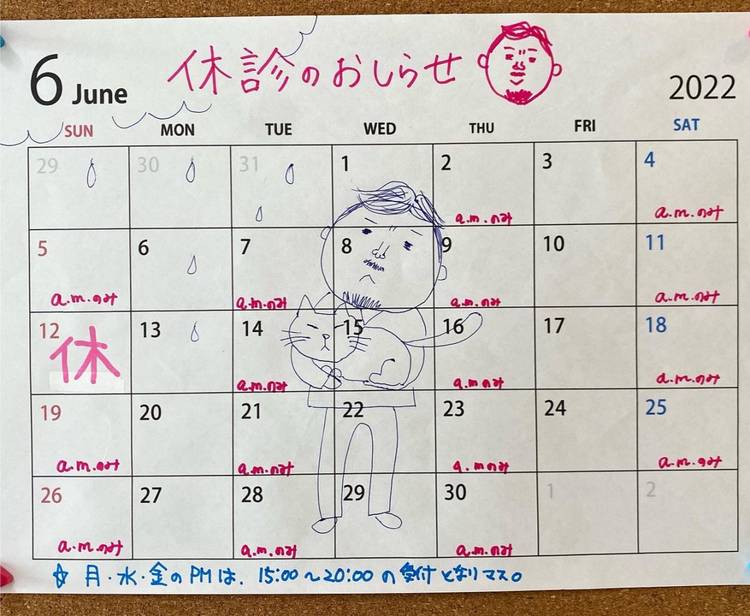 6 June 休診のおしらせ 2022
SUN MON TUE WED THU FRI SAT
29 30 31 1 2 3 4
a.m.のみ a.m.のみ
5 6 7 8 9 10 11
a.m.のみ a.m.のみ a.m.のみ a.m.のみ
12 13 14 15 16 17 18
休 a.m.のみ a.m.のみ a.m.のみ
19 20 21 22 23 24 25
a.m.のみ a.m.のみ a.m.のみ a.m.のみ
26 27 28 29 30 1 2
a.m.のみ a.m.のみ a.m.のみ
☆ 月・水・金のPMは、15:00〜20:00の受付となりマス。